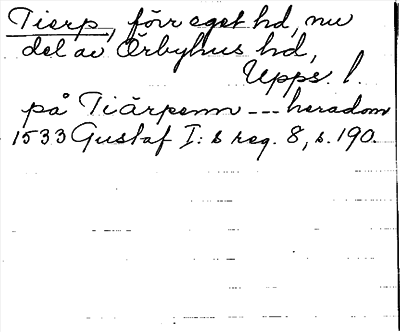 Tierp, förr eget hd, nu
del av Örbyhus hd,
Upps. l.
på Tiärpenn --- haradom
1533 Gustaf I:s reg. 8, s. 190.